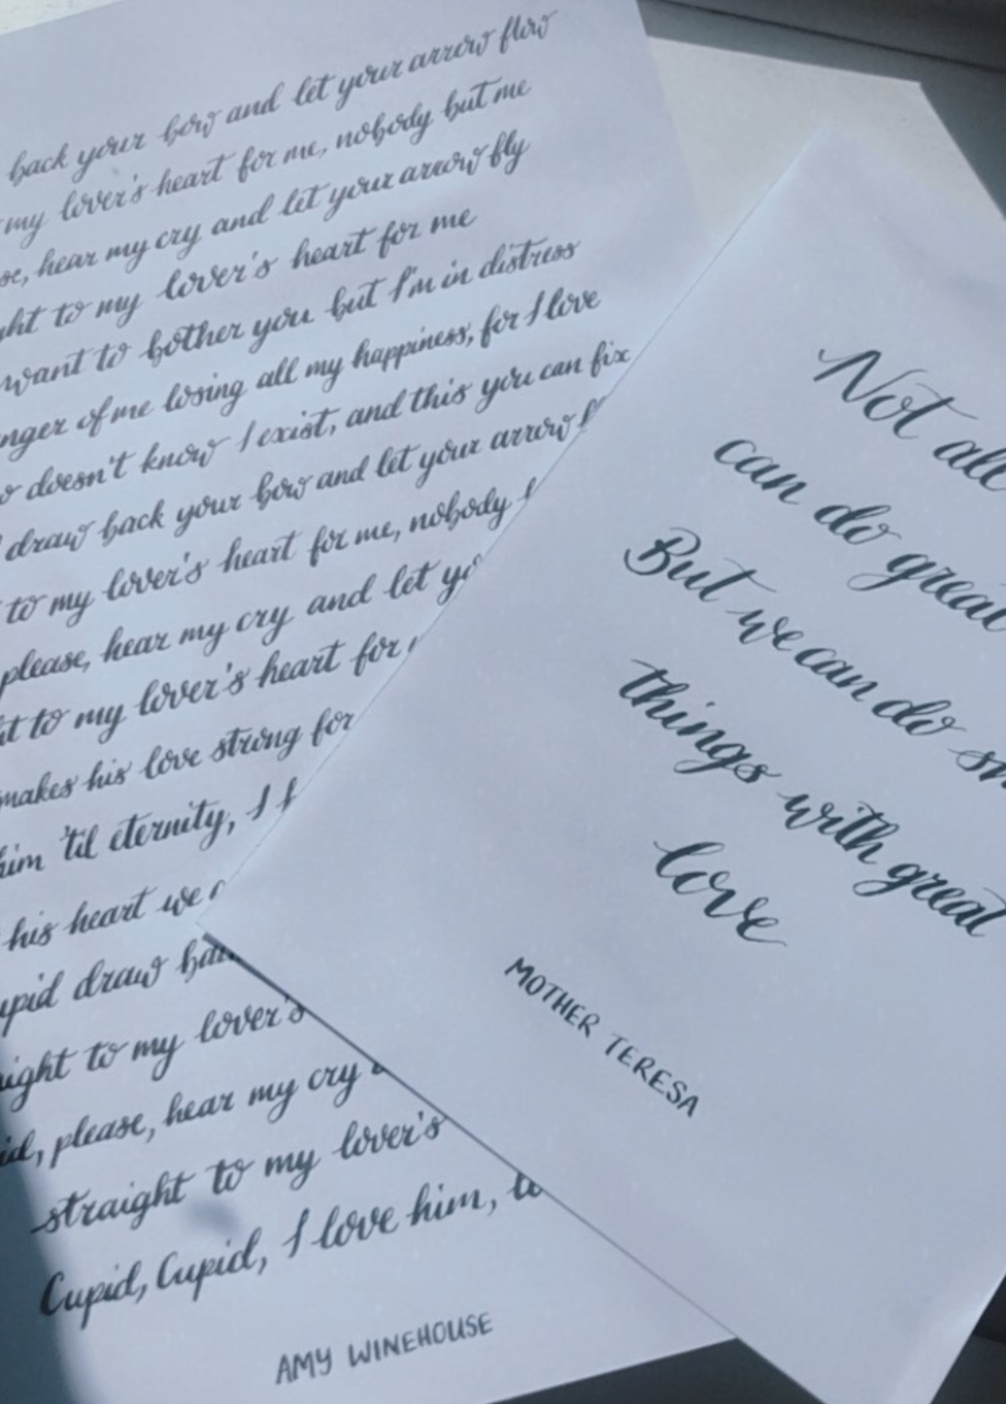 back your bow and let your arrow flow
my lover's heart for me, nobody but me
hear my cry and let your arrow fly
to my lover's heart for me
want to bother you but I'm in distress
of me losing all my happiness, for I love
doesn't know I exist, and this you can fix
draw back your bow and let your arrow
to my lover's heart for me, nobody
please, hear my cry and let
to my lover's heart for
makes his love strong for
him 'til eternity, I
his heart we
draw
to my lover's
please, hear my cry
straight to my lover's
Cupid, Cupid, I love him,
AMY WINEHOUSE
Not all
can do great
But we can do
things with great
love
MOTHER TERESA